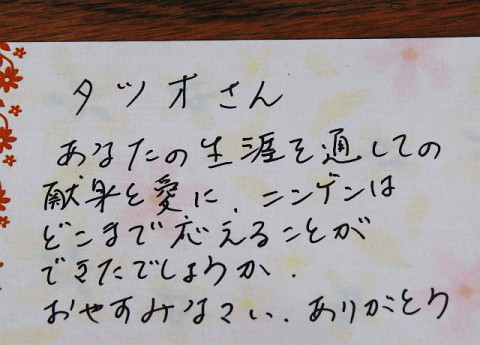 タツオさん
あなたの生涯を通しての
献身と愛に、ニンゲンは
どこまで応えることが
できたでしょうか.
おやすみなさい.ありがとう